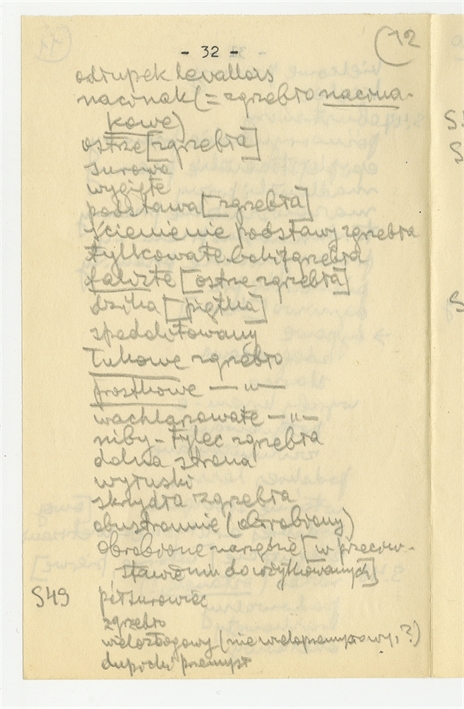 - 32 -
12
odłupek levallois
nacinak (= zgrzebło nacina-
kowe)
ostrze [zgrzebła]
surowa
wygięte
podstawa [zgrzebła]
ścienienie podstawy zgrzebła
tylkowate boki zgrzebła
faliste [ostrze zgrzebła]
dzika [piętka]
spedolitowany
łukowe zgrzebło
prostkowe — „ —
wachlarzowate — „ —
niby-tylec zgrzebła
dolna strona
wytuski
skrzydła zgrzebła
obustronnie (obrobiony)
obrobione narzędzie [w przeciw-
stawieniu do użytkowanych]
S49
półsurowiec
zgrzebło
wielozłogowy (nie wieloprzemysłowy, ?)
dupocki przemysł
S
S
S